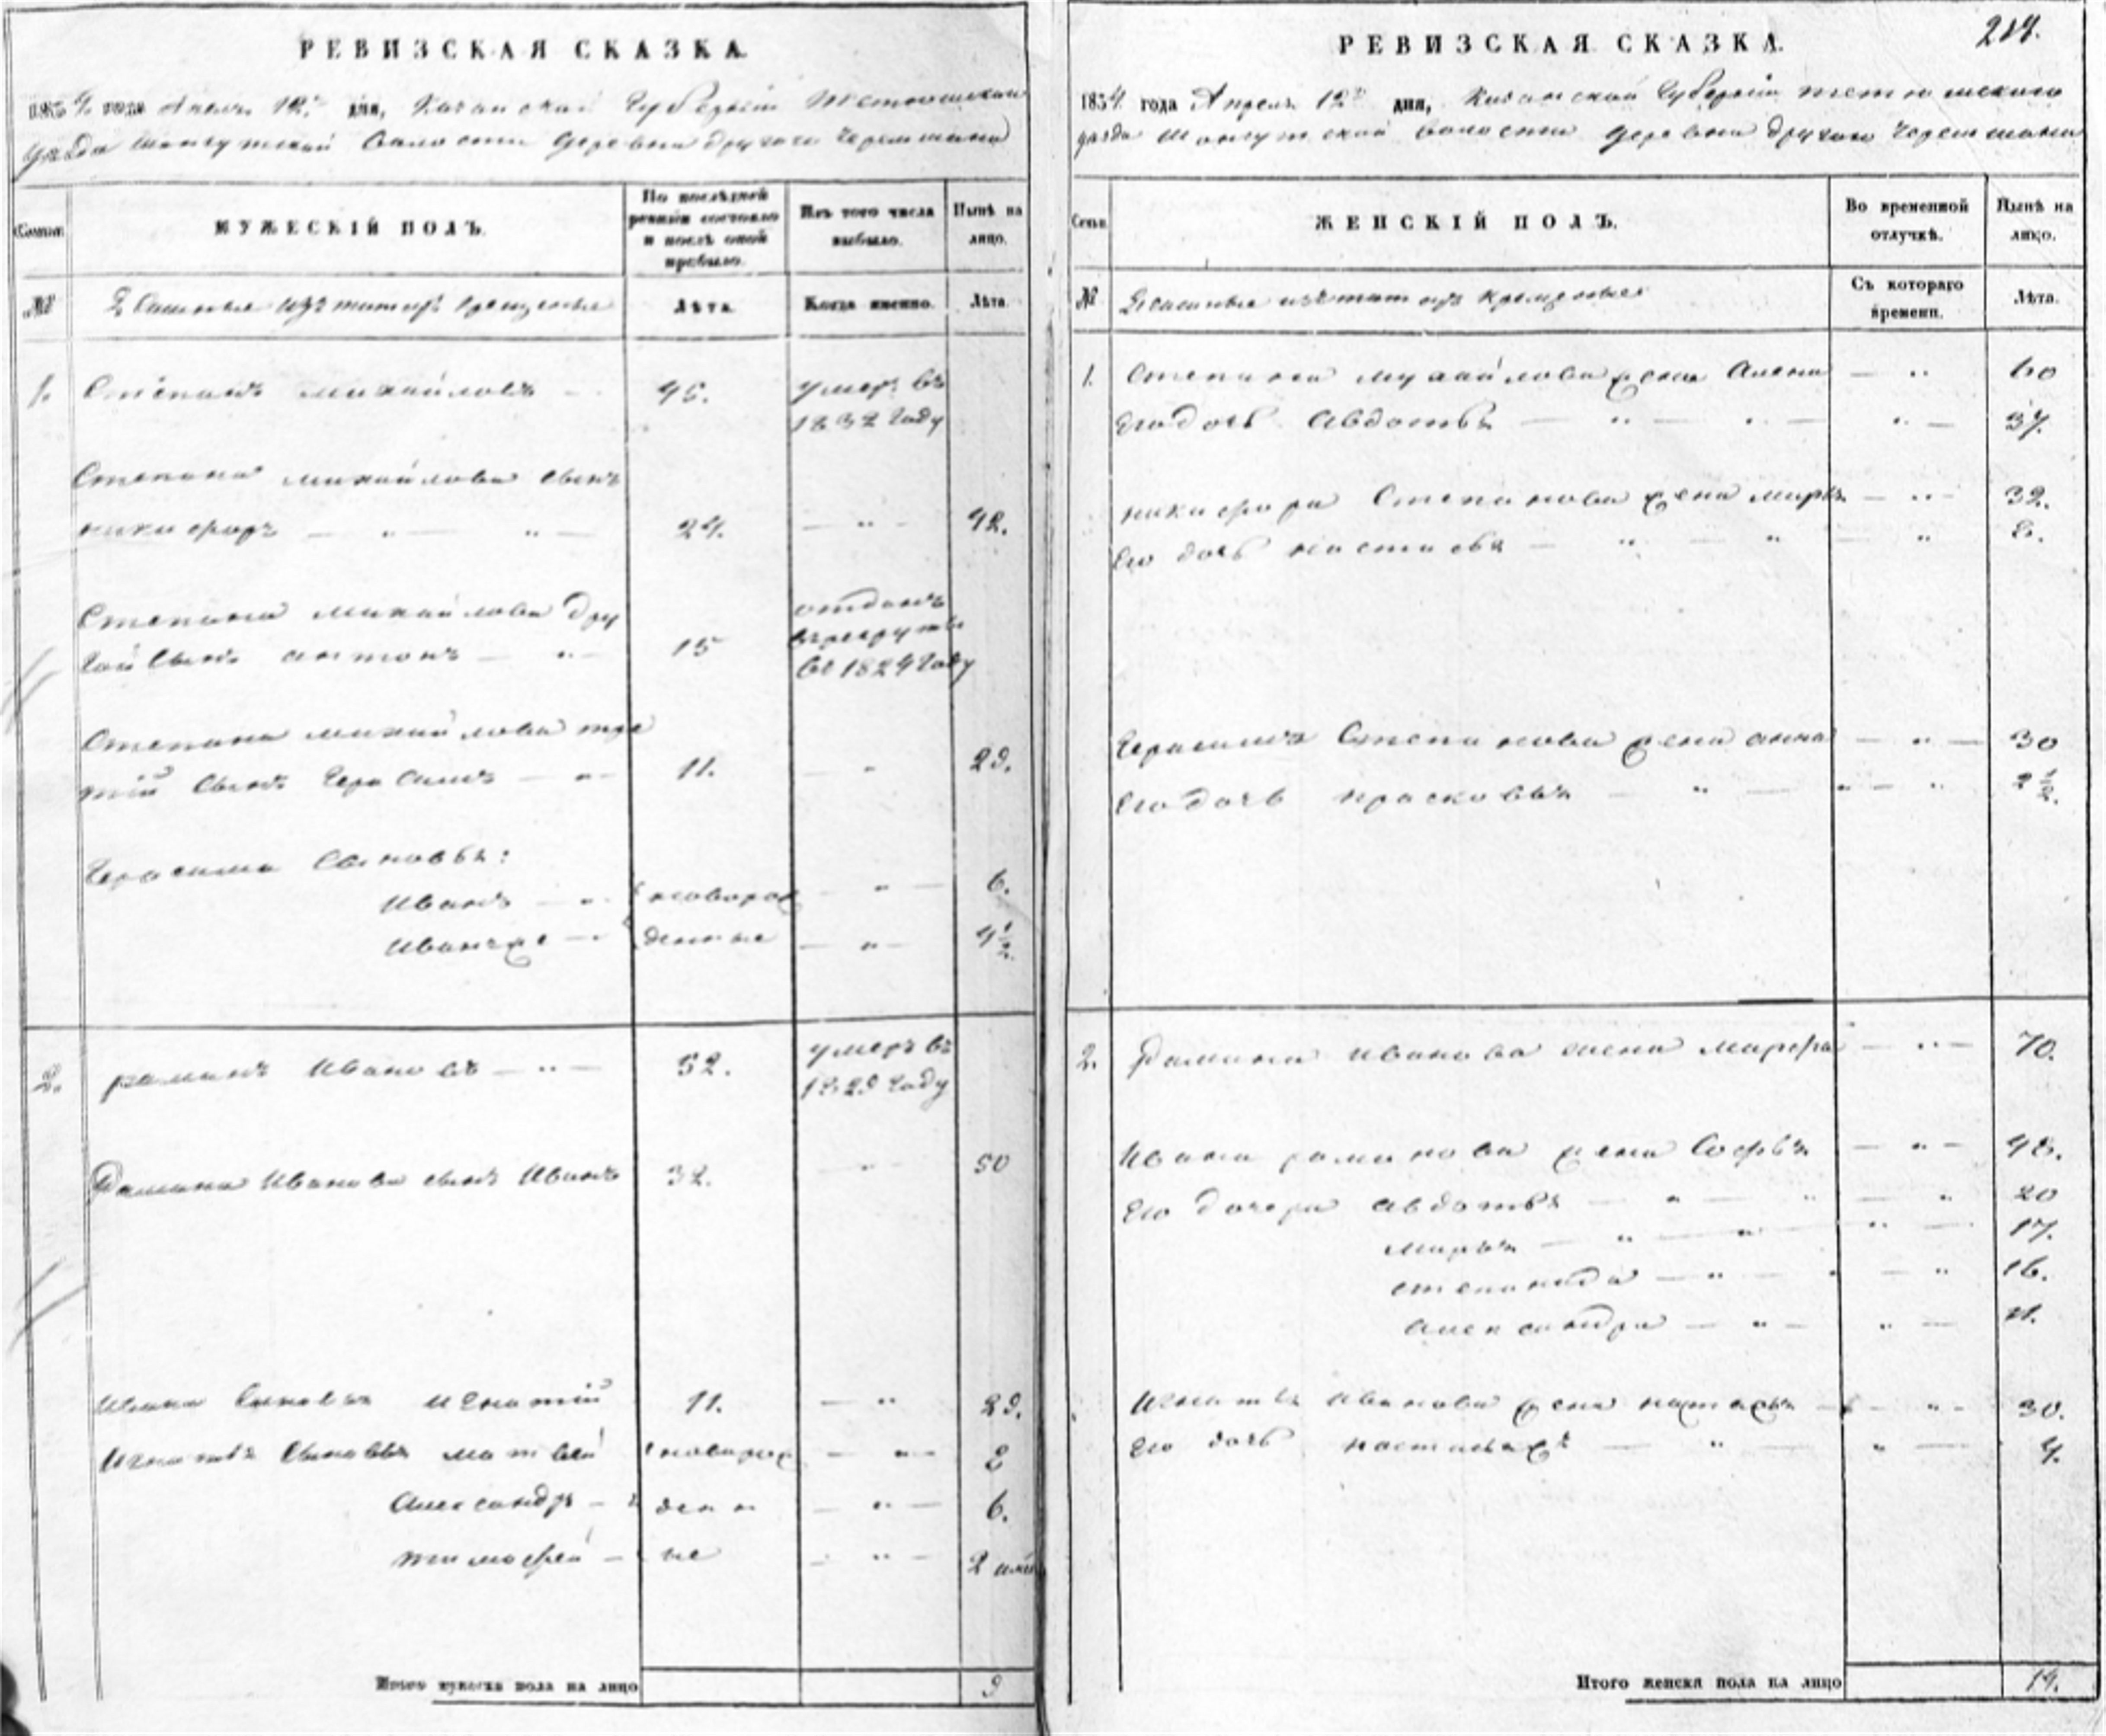 РЕВИЗСКАЯ СКАЗКА.
1834 года Апреля 12го дня, Казанской Губерніи Тетюшскаго
уезда Шонгутской Волости Деревни другаго Черемшана
Семьи.
МУЖЕСКІЙ ПОЛЪ.
По послѣдней ревизіи состояло и послѣ оной прибыло.
Изъ того числа выбыло.
Нынѣ на лицо.
№
изъ татаръ крещеные
Лѣта.
Когда именно.
Лѣта.
1. Степанъ михайловъ 45. умеръ въ
1832 Году
Степана михайлова сынъ
никифоръ — " — " — 24. — " — 42.
Степана михайлова Дру
гой Сынъ антонъ — " — 15 отданъ
в рекруты
въ 1824 Году
Степана михайлова тре
тій Сынъ Герасимъ — " — 11. — " — 29.
Герасима Сыновья:
Иванъ — " новорож — " — 6.
Иван же — денные — " — 4 1/2.
2. раманъ Ивановъ — " — 52. умеръ въ
1829 Году
Рамана Иванова сынъ Иванъ 32. — " — 50
Ивана Сыновья Игнатій 11. — " 29.
Игнатья Сыновья матвей новорож — " — 8
Александръ — ден н — " — 6.
тимофей — ые — " — 2
Итого мужеска пола на лицо 9
214.
РЕВИЗСКАЯ СКАЗКА.
1834 года Апреля 12го дня, Казанской Губерніи тетюшскаго
уезда Шонгутской Волости Деревни другаго Черемшана
Семьи.
ЖЕНСКІЙ ПОЛЪ.
Во временной отлучкѣ.
Нынѣ на лицо.
№
изъ татаръ крещеные
Съ котораго времени.
Лѣта.
1. Степана михайлова жена Алена — " 60
Его дочь Авдотья — " — " — " — 37.
никифора Степанова жена марья — " — 32.
Его дочь настасья — " — " — " 8.
Герасима Степанова жена анна — " — 30
Его дочь прасковья — " — " — " 2 1/2.
2. Рамана Иванова жена марфа — " — 70.
Ивана раманова жена Софья — " — 48.
Его дочери авдотья — " — " — " 20
марья — " — " " — 17.
степанида — " — — " 16.
александра — " — " — 11.
Игнатья Иванова жена — " — 30.
Его дочь настасья — " — " — 4.
Итого женска пола на лицо 14.